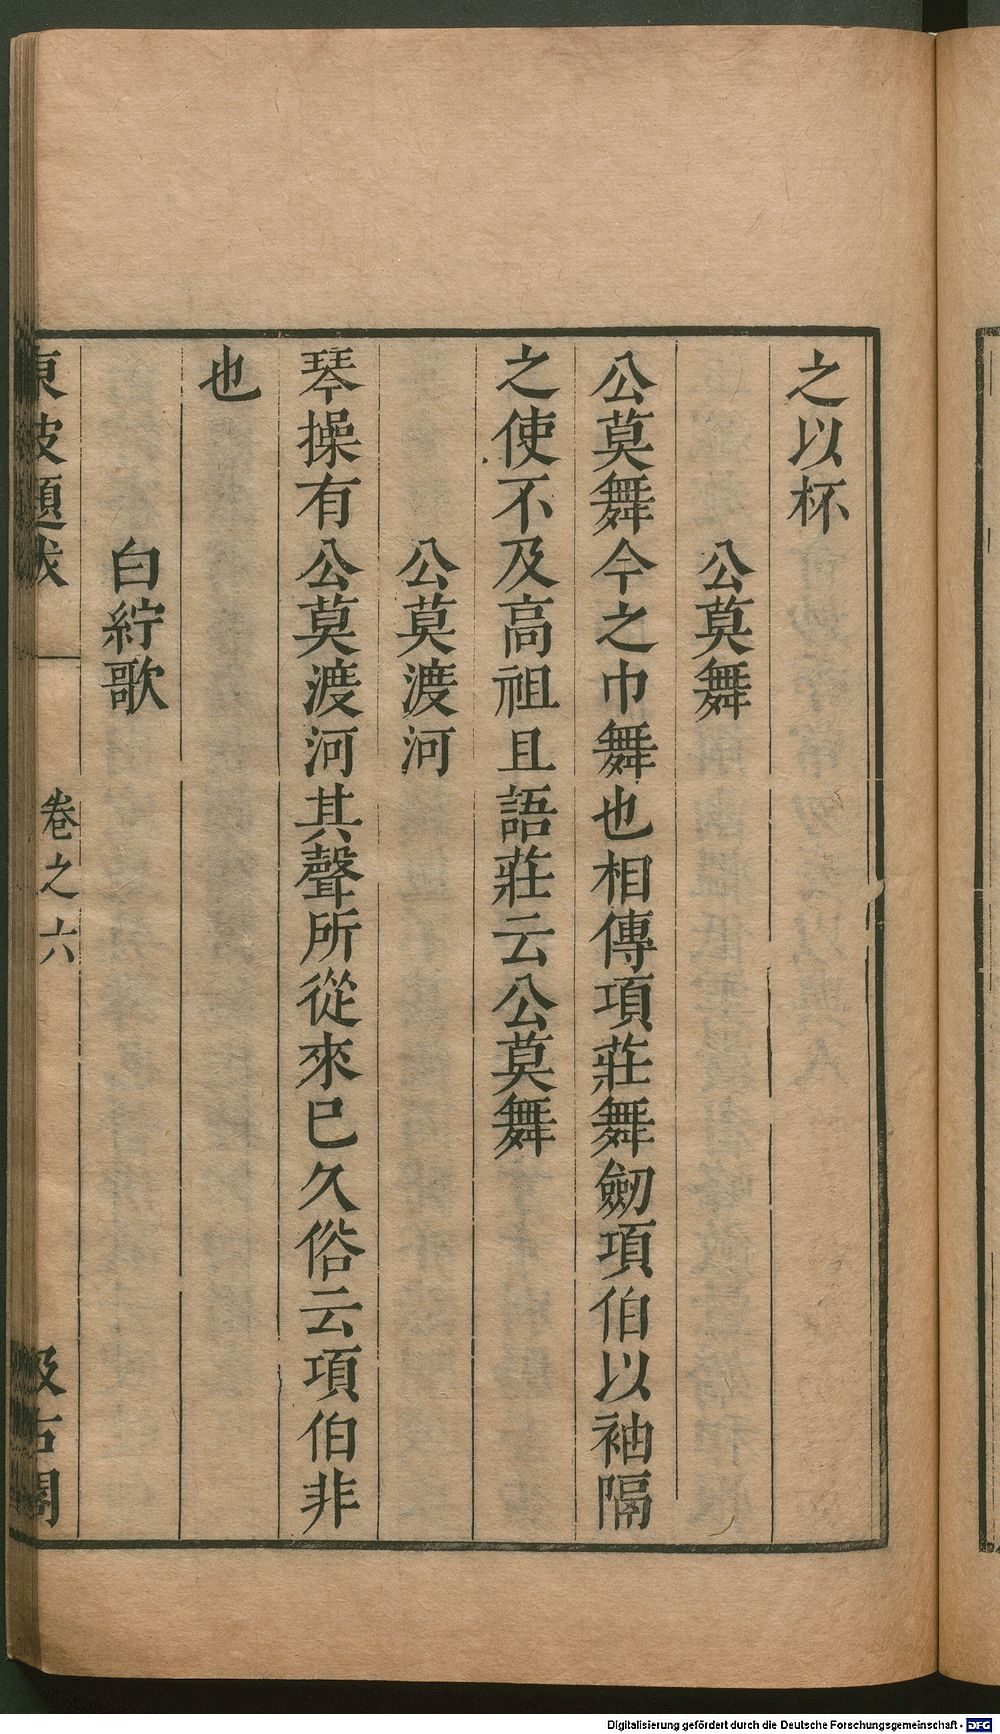 之以杯
公莫舞
公莫舞今之巾舞也相傳項莊舞劒項伯以袖隔
之使不及高祖且語莊云公莫舞
公莫渡河
琴操有公莫渡河其聲所從來已久俗云項伯非
也
白紵歌
東坡題跋 卷之六 汲古閣
Digitalisierung gefördert durch die Deutsche Forschungsgemeinschaft - DFG